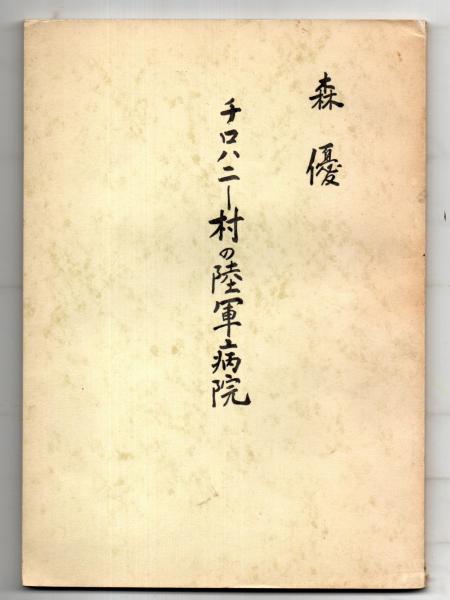 森優
チロハニー村の陸軍病院